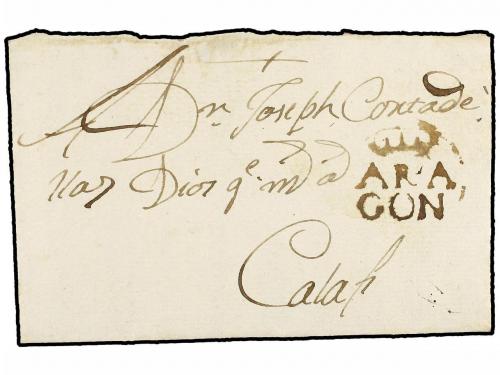 A Dn. Joseph Contade
llas Dios ge. ms. as.
ARA
GON
Calaf